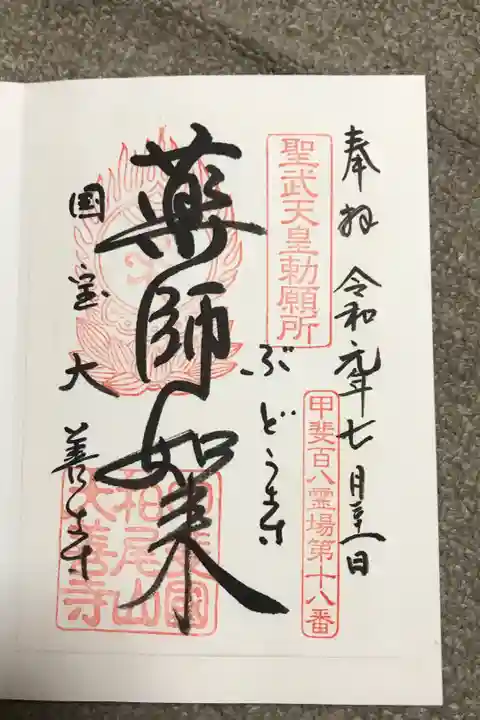 奉拝 令和元年七月 日
聖武天皇勅願所
甲斐百八霊場第十八番
ぶどう寺
薬師如来
国宝大善寺
柏尾山
大善寺